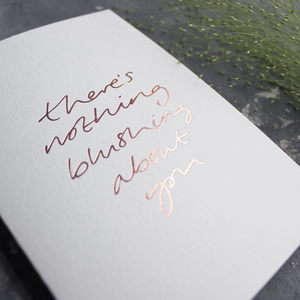 there's
nothing
blushing
about
you